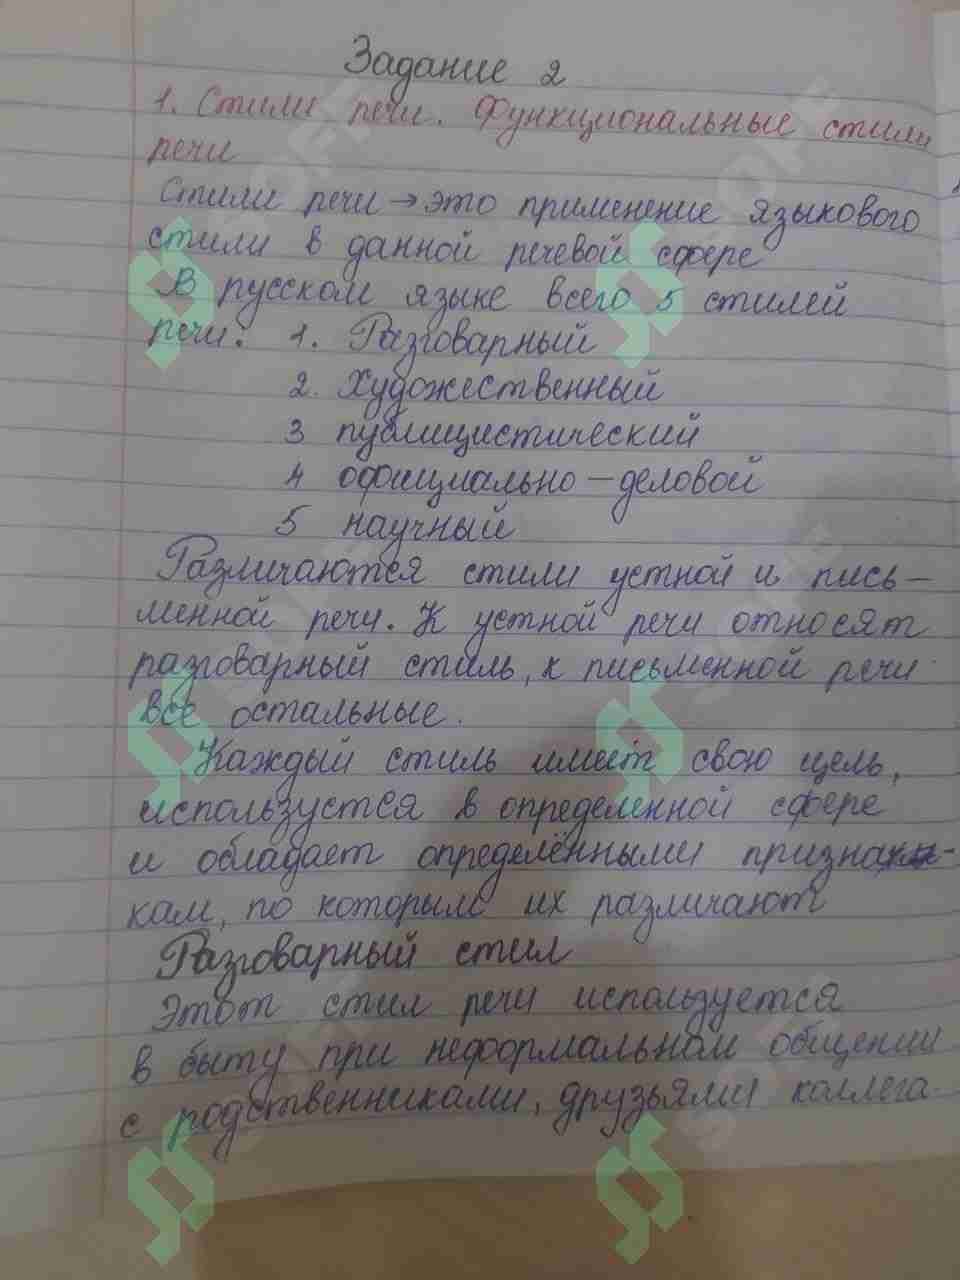 Задание 2
1. Стили речи. Функциональные стили
речи
Стили речи → это применение языкового
стили в данной речевой сфере
В русском языке всего 5 стилей
речи: 1. Разговарный
2. Художественный
3 публицистический
4 официально – деловой
5 научный
Различаются стили устной и пись-
менной речи. К устной речи относят
разговарный стиль, к письменной речи
все остальные.
Каждый стиль имеет свою цель,
используется в определенной сфере
и обладает определёнными призна-
кам, по которым их различают
Разговарный стил
Этот стил речи используется
в быту при неформальном общении
с родственниками, друзьями коллега
SOFF
SOFF
SOFF
SOFF
SOFF
SOFF